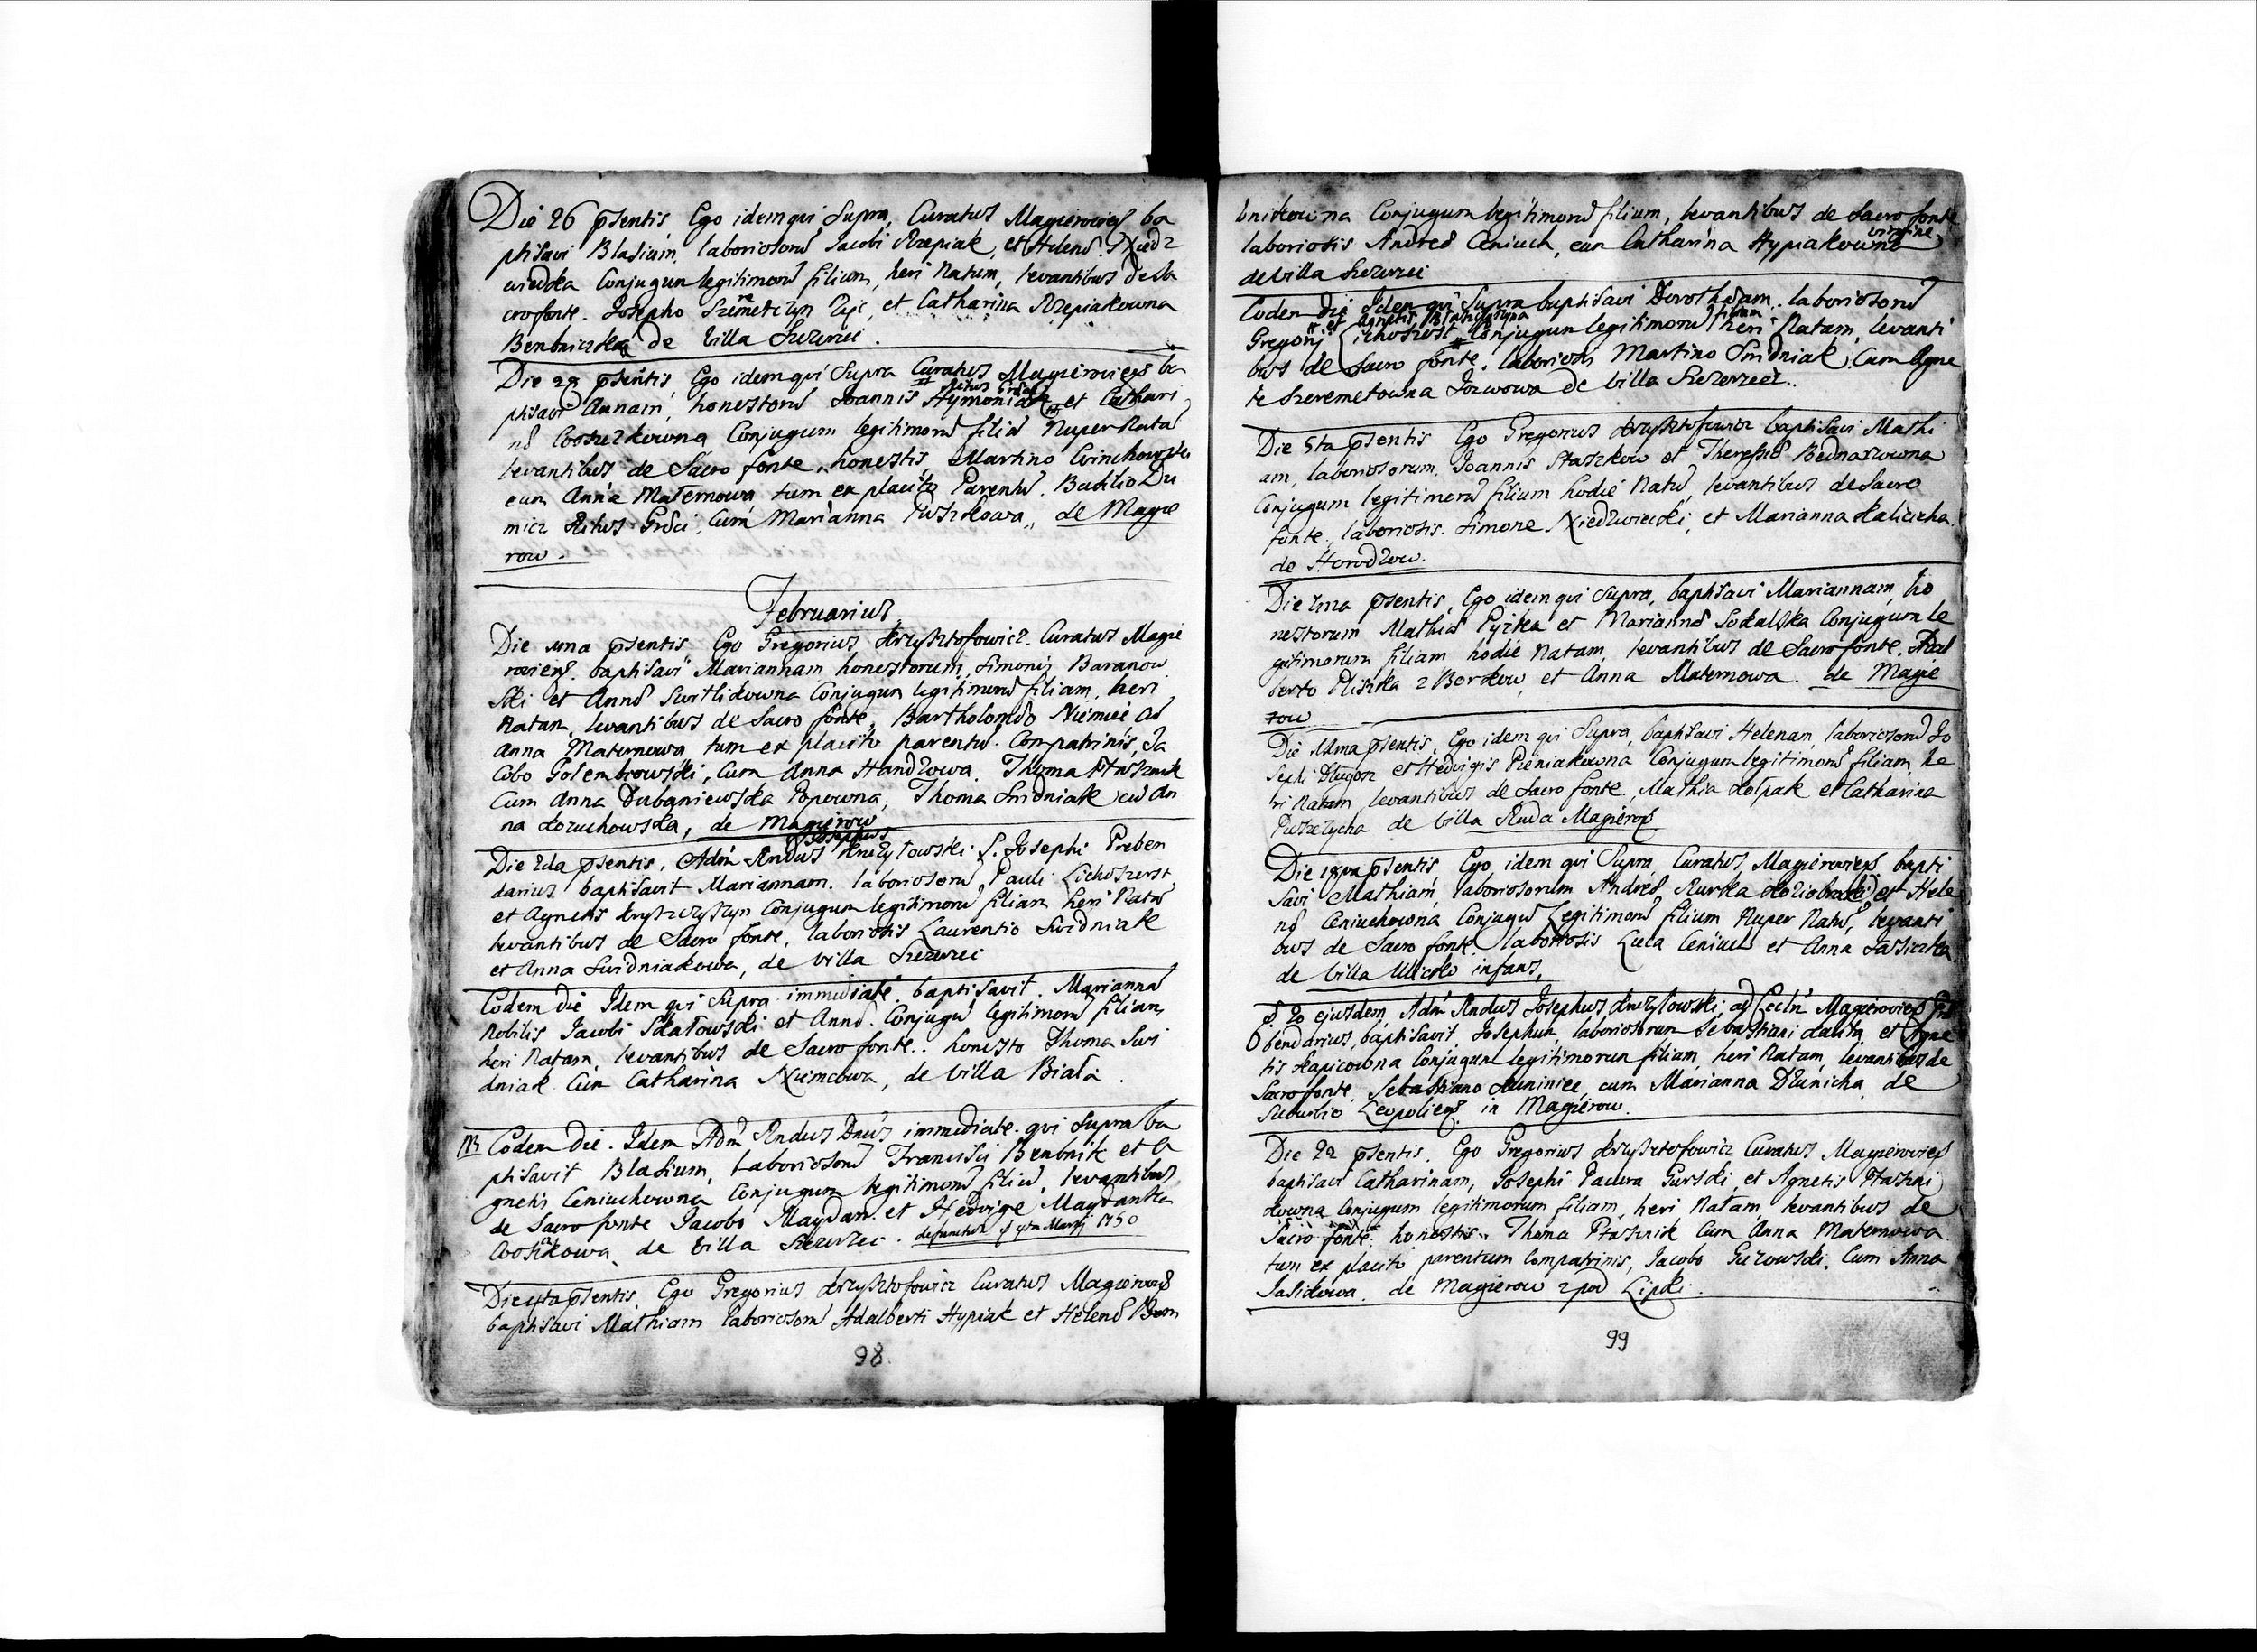 Die 26 psentis, Ego idem qui Supra, Curatus Magieroviens ba
ptisavi Blasium, laboriosoru Jacobi Rzepiak, et Helenæ Niedz
wiedzka Conjugum legitimoru filium, heri Natum, levantibus de Sa
cro fonte. Josepho et Catharina Rzepiakowna
de Villa Szczerzec.
Die 29 psentis, Ego idem qui Supra Curatus Magieroviens ba
ptisavi Annam, honestoru Joannis Hymoniak et Cathari
næ Conjugum legitimoru filia Nuper Nata
levantibus de Sacro fonte, honestis, Martino
cum Anna Maternowa tum ex placito Parentu. Basilio Du
micz Ritus Græci, Cum Marianna de Magie
row.
Februarius
Die 1ma psentis Ego Gregorius Krzysztofowicz. Curatus Magie
roviens. baptisavi Mariannam honestorum, Simonis Baranow
ski et Annæ Conjugum legitimoru filiam, heri
Natam, levantibus de Sacro fonte, Bartholomæo Niemiec
Anna Maternowa, tum ex placito parentu. Compatrinis, Ja
cobo Golembrowski, Cum Anna Handzowa. Thoma Ptasznik
Cum Anna Dubaniewska Popowna, Thoma Swidniak cu An
na Kozuchowska, de Magierow
Josephus
Die 2da psentis, Adm Rndus Kruzylowski S. Josephi Preben
darius baptisavit Mariannam. laboriosoru, Pauli Lichoszerst
et Agnetis Kryszczyszyn Conjugum legitimoru filiam heri Nata
levantibus de Sacro fonte, laboriosis Laurentio Swidniak
et Anna Swidniakowa, de Villa Szczerzec
Eodem die Idem qui Supra immediate baptisavit. Marianna
Nobilis Jacobi Skalowski et Annæ. Conjugu legitimoru filiam
heri Natam, levantibus de Sacro fonte.. honesto Thoma Swi
dniak Cum Catharina Niemcowa, de Villa Biala.
NB Eodem die. Idem Adm Rndus Dnus immediate qui Supra ba
ptisavit Blasium, Laboriosoru Francisci Bembnik et A
gnetis Ceniuchowna Conjugum legitimoru filiu, levantibus
de Sacro fonte Jacobo Maydan et Hedvige Maydanka
de Villa Szczerzec. defunctus d 4ta Martij 1750
Die 4ta psentis Ego Gregorius Krzysztofowicz Curatus Magieroviens
baptisavi Mathiam laboriosoru Adalberti Hypiak et Helenæ Bem
98
bnikowna Conjugum legitimoru filium, levantibus de Sacro fonte
laboriosis Andrea Ceniuch, cum Catharina Hypiakowna virgine
de Villa Szczerzec
Eodem die Idem qui Supra baptisavi Dorotheam. laboriosoru
et Agnetis filiam
Gregorij Lichoszerst Conjugum legitimoru heri Natam, levanti
bus de Sacro fonte, laboriosis Martino Swidniak, Cum Agne
te Szeremetowna Jozwowa de Villa Szczerzec..
Die 5ta psentis Ego Gregorius Krzysztofowicz baptisavi Mathi
am, laboriosorum. Joannis Staszkow et Theresiæ Bednarzowna
Conjugum legitimoru filium hodie Natu, levantibus de Sacro
fonte, laboriosis. Simone Niedzwiecki, et Marianna Kaliczcha
de Horodzow.
Die 7ma psentis, Ego idem qui Supra, baptisavi Mariannam, ho
nestorum Mathiæ Pyzka et Mariannæ Sokalska Conjugum le
gitimorum filiam hodie Natam, levantibus de Sacro fonte. Adal
berto Pliszka z Borkow, et Anna Maternowa. de Magie
row
Die psentis, Ego idem qui Supra, baptisavi Helenam, laboriosoru Jo
sephi Dlugosz et Hedvigis Pieniakowna Conjugum legitimoru filiam, he
ri Natam, levantibus de Sacro fonte, Mathia Kolpak et Catharina
de Villa Ruda Magierov
Die 18va psentis, Ego idem qui Supra, Curatus, Magieroviens. bapti
savi Mathiam, laboriosorum Andreæ Kurka et Hele
næ Ceniuchowna Conjugu Legitimoru filium Nuper Natu, levanti
bus de Sacro fonte. laboriosis Luca Ceniuch et Anna
de Villa Ulicko infans,
d 20 ejusdem Adm Rndus Josephus Kruzylowski, ad Ecclm Magieroviens Præ
bendarius, baptisavit Josepham, laboriosorum Sebastiani et Agne
tis Kapicowna Conjugum legitimorum filiam, heri Natam, levantibus de
Sacro fonte, Sebastiano cum Marianna Dlunicha, de
Suburbio Leopoliens. in Magierow.
Die 22 psentis, Ego Gregorius Krzysztofowicz Curatus Magieroviens
baptisavi Catharinam, Josephi Pacura Gurski, et Agnetis Ptaszni
kowna Conjugum legitimorum filiam, heri Natam, levantibus de
Sacro fonte: honestis. Thoma Ptasznik Cum Anna Maternowa
tum ex placito parentum Compatrinis, Jacobo Guzowski, Cum Anna
Jasikowa. de Magierow z pod Lipki.
99